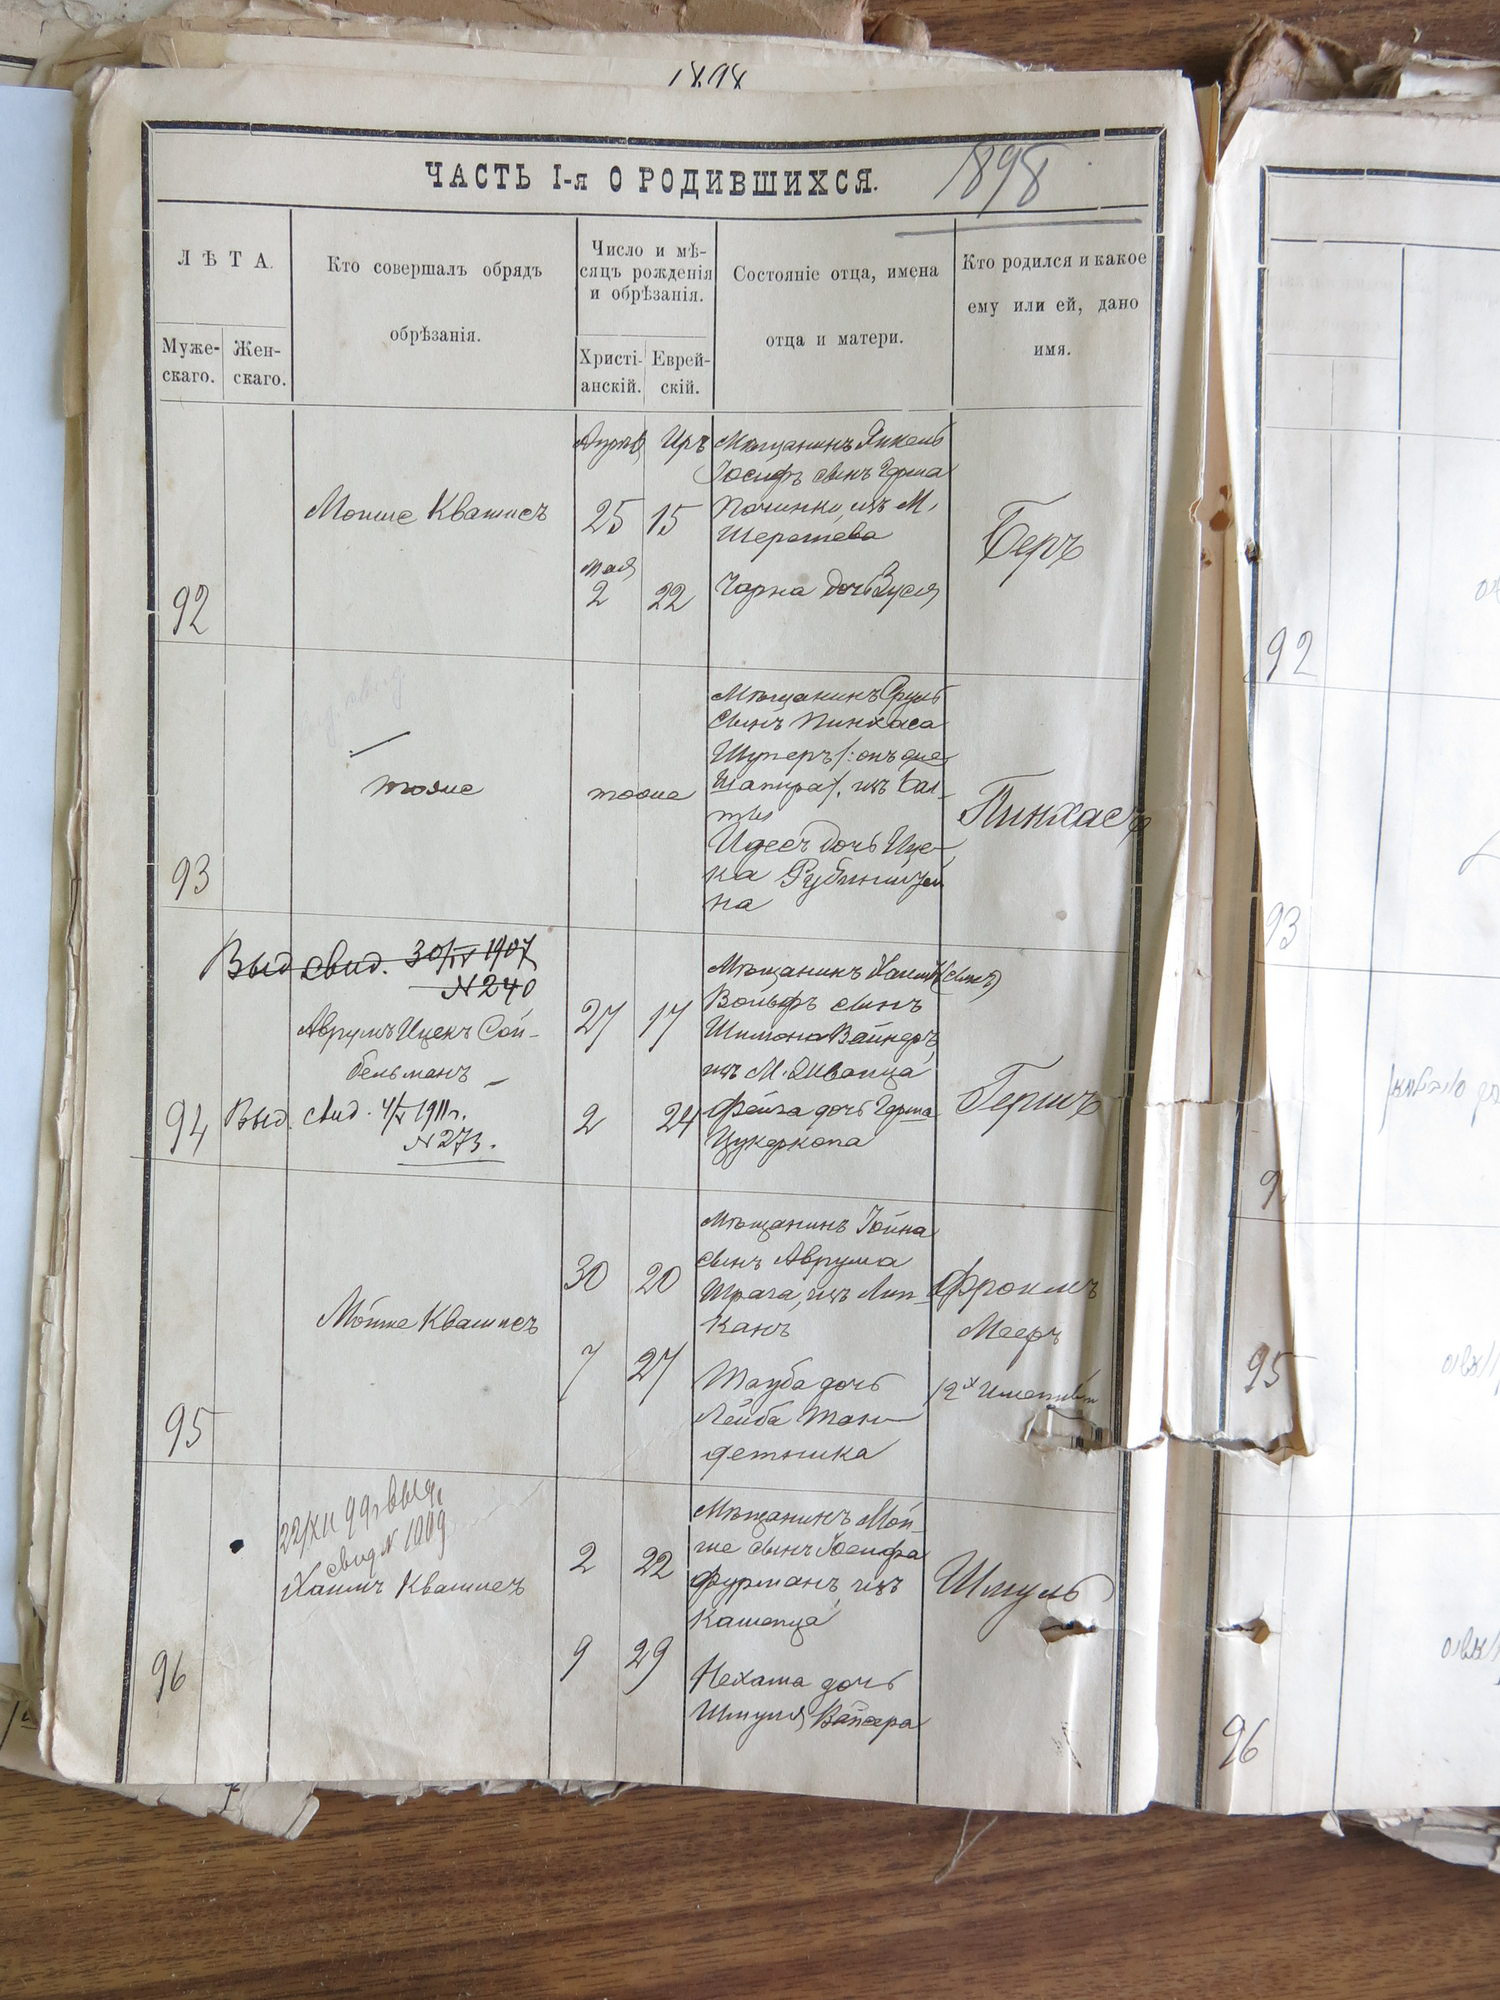 1898
ЧАСТЬ I-я О РОДИВШИХСЯ.
1898
ЛѢТА.
Муже-
скаго.
Жен-
скаго.
Кто совершалъ обрядъ
обрѣзанія.
Число и мѣ-
сяцъ рожденія
и обрѣзанія.
Христі-
анскій.
Еврей-
скій.
Состояніе отца, имена
отца и матери.
Кто родился и какое
ему или ей, дано
имя.
92
Мошше Квашисъ
Иръ
25 15
мая
2 22
Мѣщанинъ Янкель
Іосифъ сынъ Герша
Починки, изъ М.
Шерошева
Чарна дочь Зуся
Беръ
93
тоже
тоже
Мѣщанинъ Сруль
сынъ Пинхаса
Шуперъ /: онъ же
Шапира /, изъ Бал-
ты
Идесъ дочь Ице-
ка Рубинштей
на
Пинхасъ
Выд свид. 30/IV 1907
N 240
94
Аврумъ Ицекъ Сой-
бельманъ
Выд. свид. 4/X 1911 г.
N 273.
27 17
2 24
Мѣщанинъ Хаимъ (сынъ)
Вольфъ сынъ
Шимона Вайнеръ,
изъ М.
Фейга дочь Герша
Цукеркопа
Гершъ
95
Мошше Квашисъ
30 20
7 27
Мѣщанинъ Іойна
сынъ Аврума
Шрага, изъ Лип-
канъ
Тауба дочь
Лейба Тан-
детника
Фроимъ
Мееръ
96
22/XII 99 г выд.
свид N 1009
Хаимъ Квашисъ
2 22
9 29
Мѣщанинъ Мой-
ше сынъ Іосифа
Фурманъ, изъ
Кашенца
Нехама дочь
Шмуля Вайсера
Шмуль
92
93
95
96